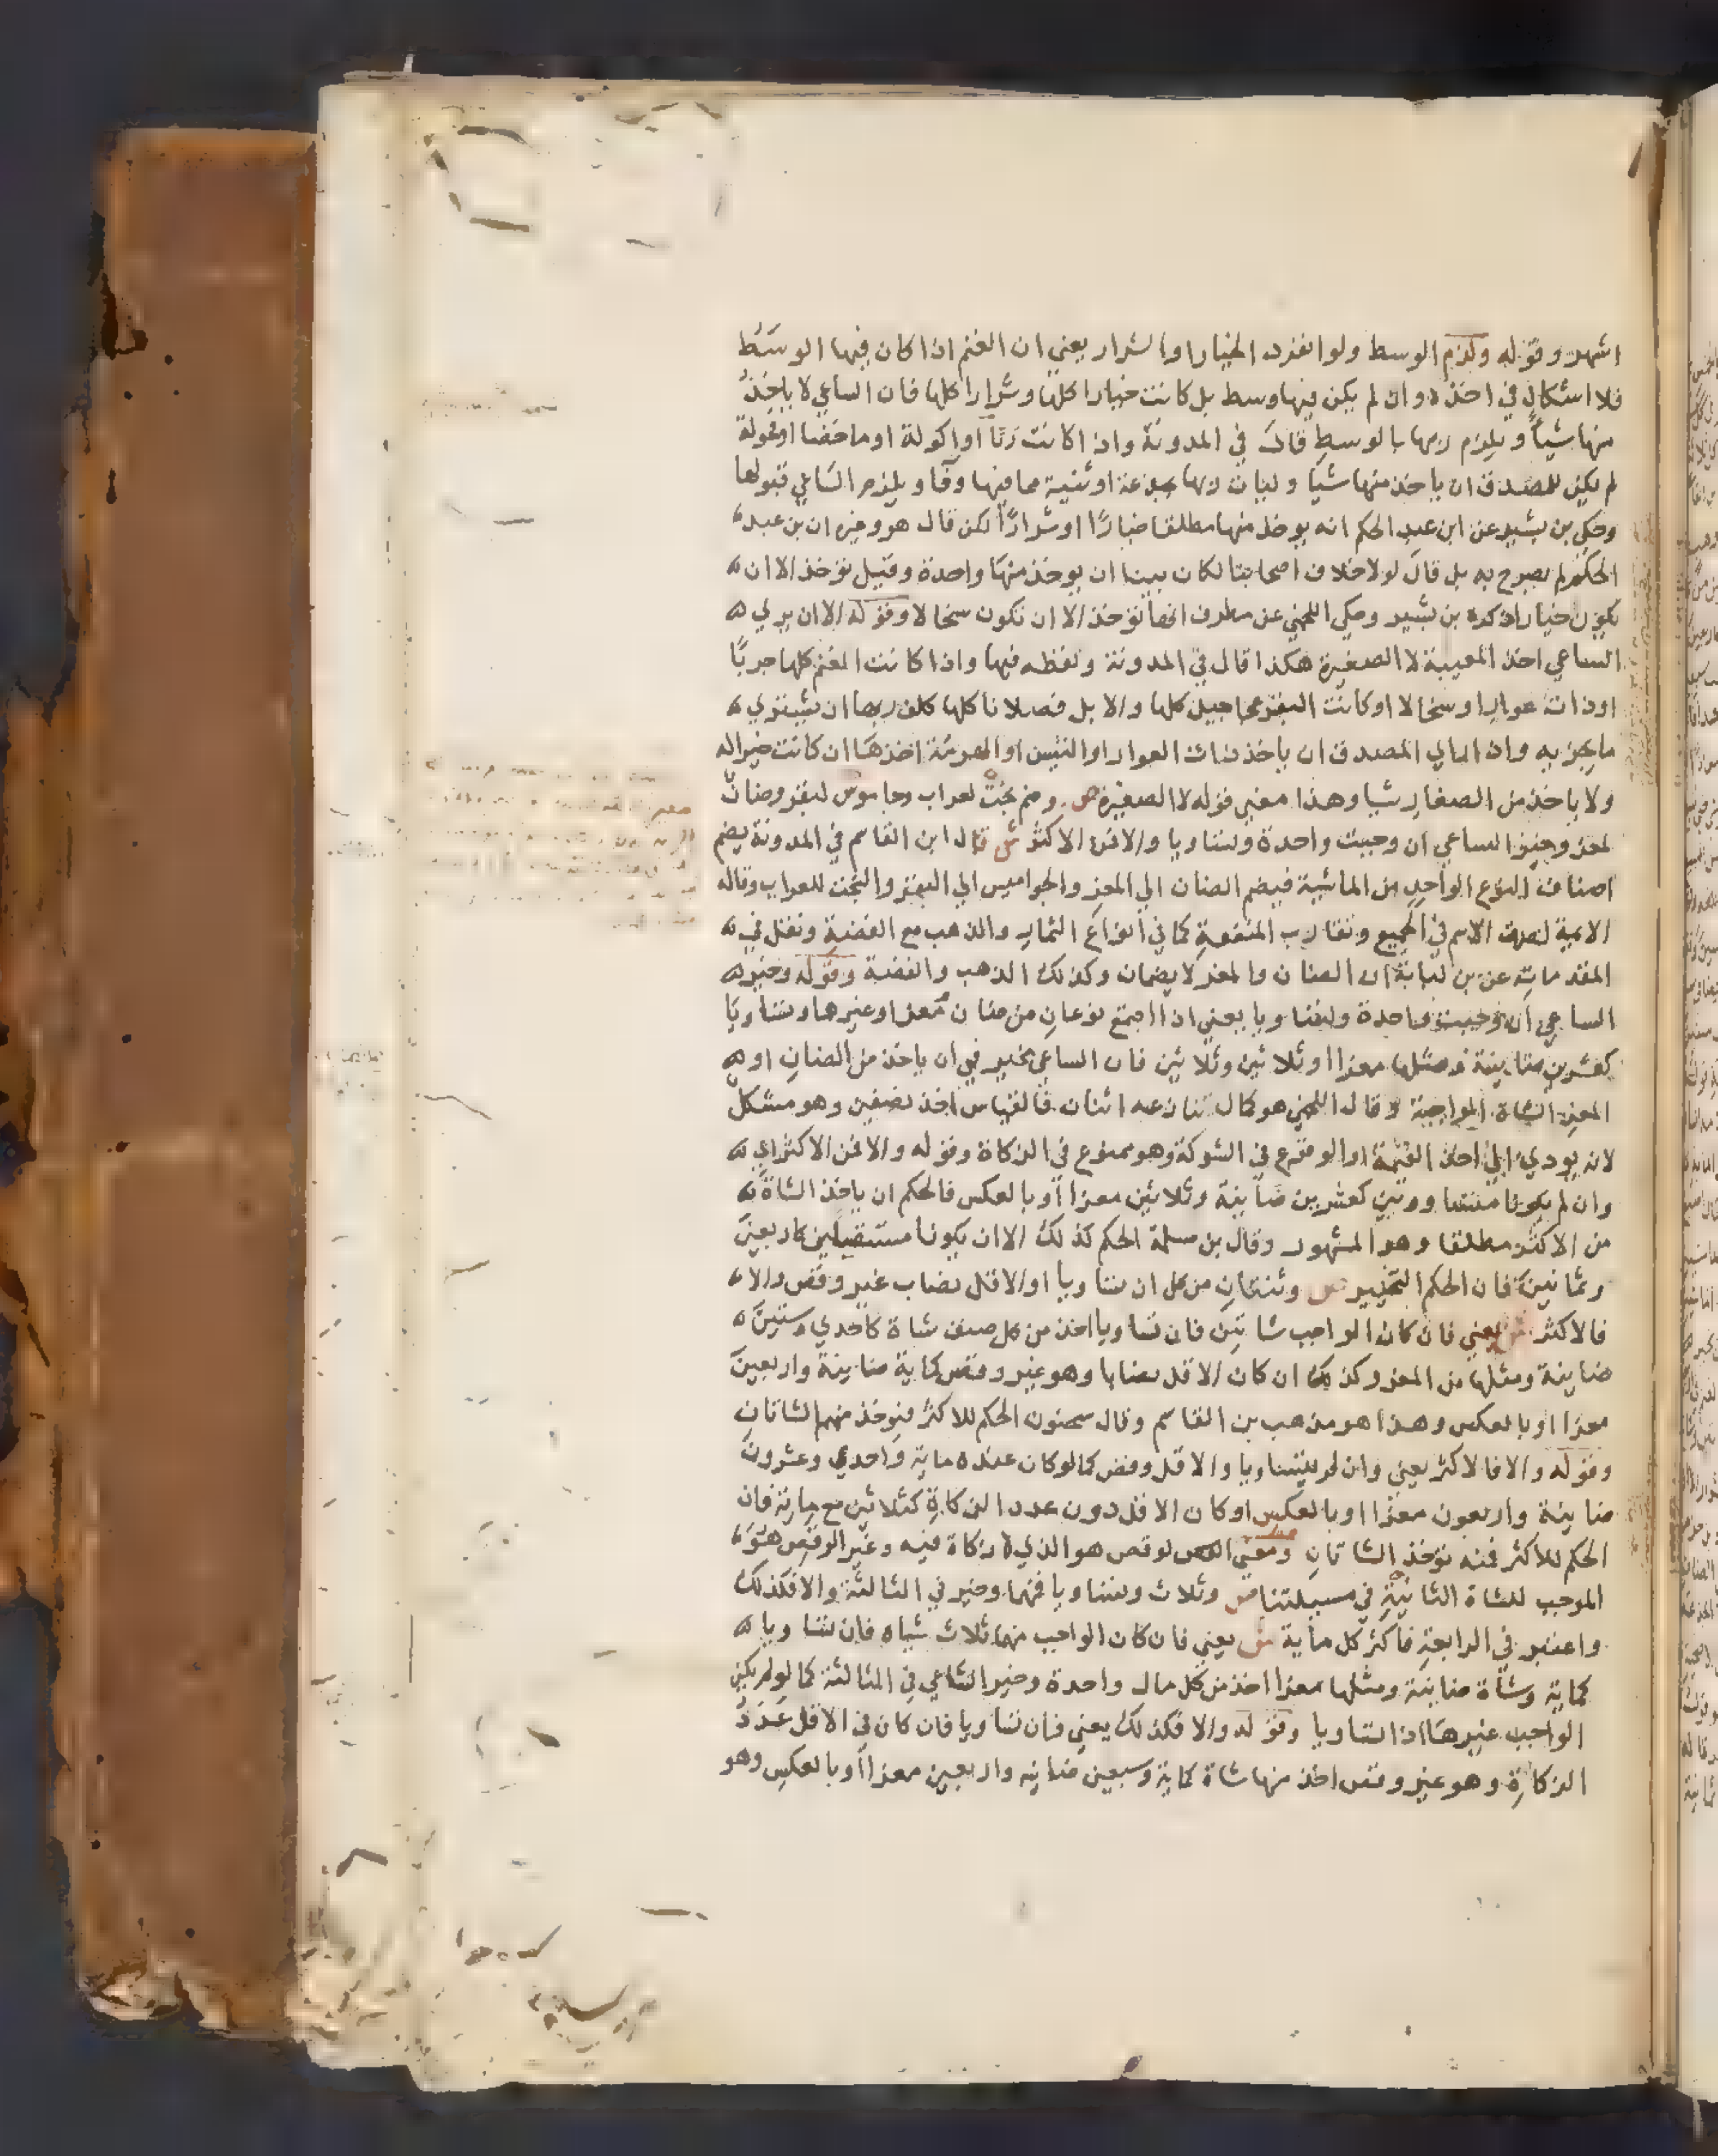 اشهر وقوله ولزم الوسط ولو انفرد الخيار او الشرار يعني ان الغنم اذا كان فيها الوسط
فلا اشكال في اخذه وان لم يكن فيها وسط بل كانت خيارا كلها وشرارا كلها فان الساعي لا ياخذ
منها شيا ويلزم ربها بالوسط قال في المدونة واذا كانت ربّا او اكولة او ماخضا او فحولة
لم يكن للمصدق ان ياخذ منها شيا وليات ربها بجذعة او ثنية مما فيها وفا ويلزم الساعي قبولها
وحكي بن بشير عن ابن عبد الحكم انه يوخذ منها مطلقا خيارًا او شرارًا لكن قال هو وغيره ان بن عبد
الحكم لم يصرح به بل قال لولا خلاف اصحابنا لكان بينا ان يوخذ منها واحدة وقيل تؤخذ الا ان
يكون خيارا ذكره بن بشير وحكي اللخمي عن مطرف انها تؤخذ الا ان تكون سخالا وقوله الا ان يري
الساعي اخذ المعيبة لا الصغيرة هكذا قال في المدونة ولفظه فيها واذا كانت الغنم كلها جربًا
او ذات عوار او سخالا او كانت البقر عجاجيل كلها والابل فصلانا كلها كلف ربها ان يشتري
ما يجزيه وان راي المصدق ان ياخذ ذات العوار او التيس او الهرمة اخذها ان كانت خيرا له
ولا ياخذ من الصغار شيا وهذا معني قوله لا الصغيرة ص وضم بخت لعراب وجاموس لبقر وضان
لمعز وخير الساعي ان وجبت واحدة وتساويا والا فمن الاكثر ش قال ابن القاسم في المدونة يضم
اصناف النوع الواحد من الماشية فيضم الضان الي المعز والجواميس الي البقر والبخت للعراب وقاله
الايمة لصدق الاسم في الجميع وتقارب المنفعة كما في انواع الثمار والذهب مع الفضة ونقل في
المقدمات عن بن لبابة ان الضان والمعز لا يضمان وكذلك الذهب والفضة وقوله وخير
الساعي ان وجبت واحدة وتساويا يعني اذا اجتمع نوعان من ضان ومعز او غيرها وتساويا
كعشرين ضاينة ومثلها معزا او ثلاثين وثلاثين فان الساعي مخير في ان ياخذ من الضان او
المعز الشاة الواجبة وقال اللخمي هو كمال تنازعه اثنان فالقياس اخذ نصفين وهو مشكل
لانه يودي الي اخذ القيمة او الوقوع في الشركة وهو ممنوع في الزكاة وقوله والا فمن الاكثر اي
وان لم يكونا متساويين كعشرين ضاينة وثلاثين معزا او بالعكس فالحكم ان ياخذ الشاة
من الاكثر مطلقا وهو المشهور وقال بن مسلمة الحكم كذلك الا ان يكونا مستقلين كاربعين
وثمانين فان الحكم التخيير ص وثنتان من كل ان تساويا او الاقل نصاب غير وقص والا
فالاكثر ش يعني فان كان الواجب شاتين فان تساويا اخذ من كل صنف شاة كاحدي وستين
ضاينة ومثلها من المعز وكذلك ان كان الاقل نصابا وهو غير وقص كماية ضاينة واربعين
معزا او بالعكس وهذا هو مذهب بن القاسم وقال سحنون الحكم للاكثر فيوخذ منهم الشاتان
وقوله والا فالاكثر يعني وان لم يتساويا والاقل وقص كما لو كان عنده ماية واحدي وعشرون
ضاينة واربعون معزا او بالعكس او كان الاقل دون عدد الزكاة كثلاثين مع ماية فان
الحكم للاكثر فمنه توخذ الشاتان ومعني الوقص هو الذي لا زكاة فيه وغير الوقص هو
الموجب للشاة الثانية في مسيلتنا ص وثلاث وتساويا فمنهما وخير في الثالثة والا فكذلك
واعتبر في الرابعة فاكثر كل ماية ش يعني فان كان الواجب منهما ثلاث شياه فان تساويا
كماية وشاة ضاينة ومثلها معزا اخذ من كل مال واحدة وخير الساعي في الثالثة كما لو لم يكن
الواجب غيرها اذا تساويا وقوله والا فكذلك يعني فان تساويا فان كان في الاقل عدد
الزكاة وهو غير وقص اخذ منها شاة كماية وسبعين ضاينه واربعين معزا او بالعكس وهو